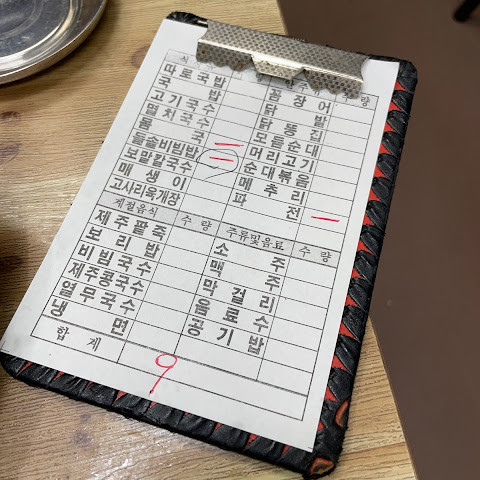 식 주 수 량
따로국밥 꼼장어
국밥 닭발
고기국수 닭똥집
멸치국수 모듬순대
몸국 머리고기
돌솥비빔밥 一 순대볶음
보말칼국수 二 메추리
매생이 파전 一
고사리육개장
계절음식 수량 주류및음료 수량
제주팥죽 소주
보리밥 맥주
비빔국수 막걸리
제주콩국수 음료수
열무국수 공기밥
냉면
합계 9